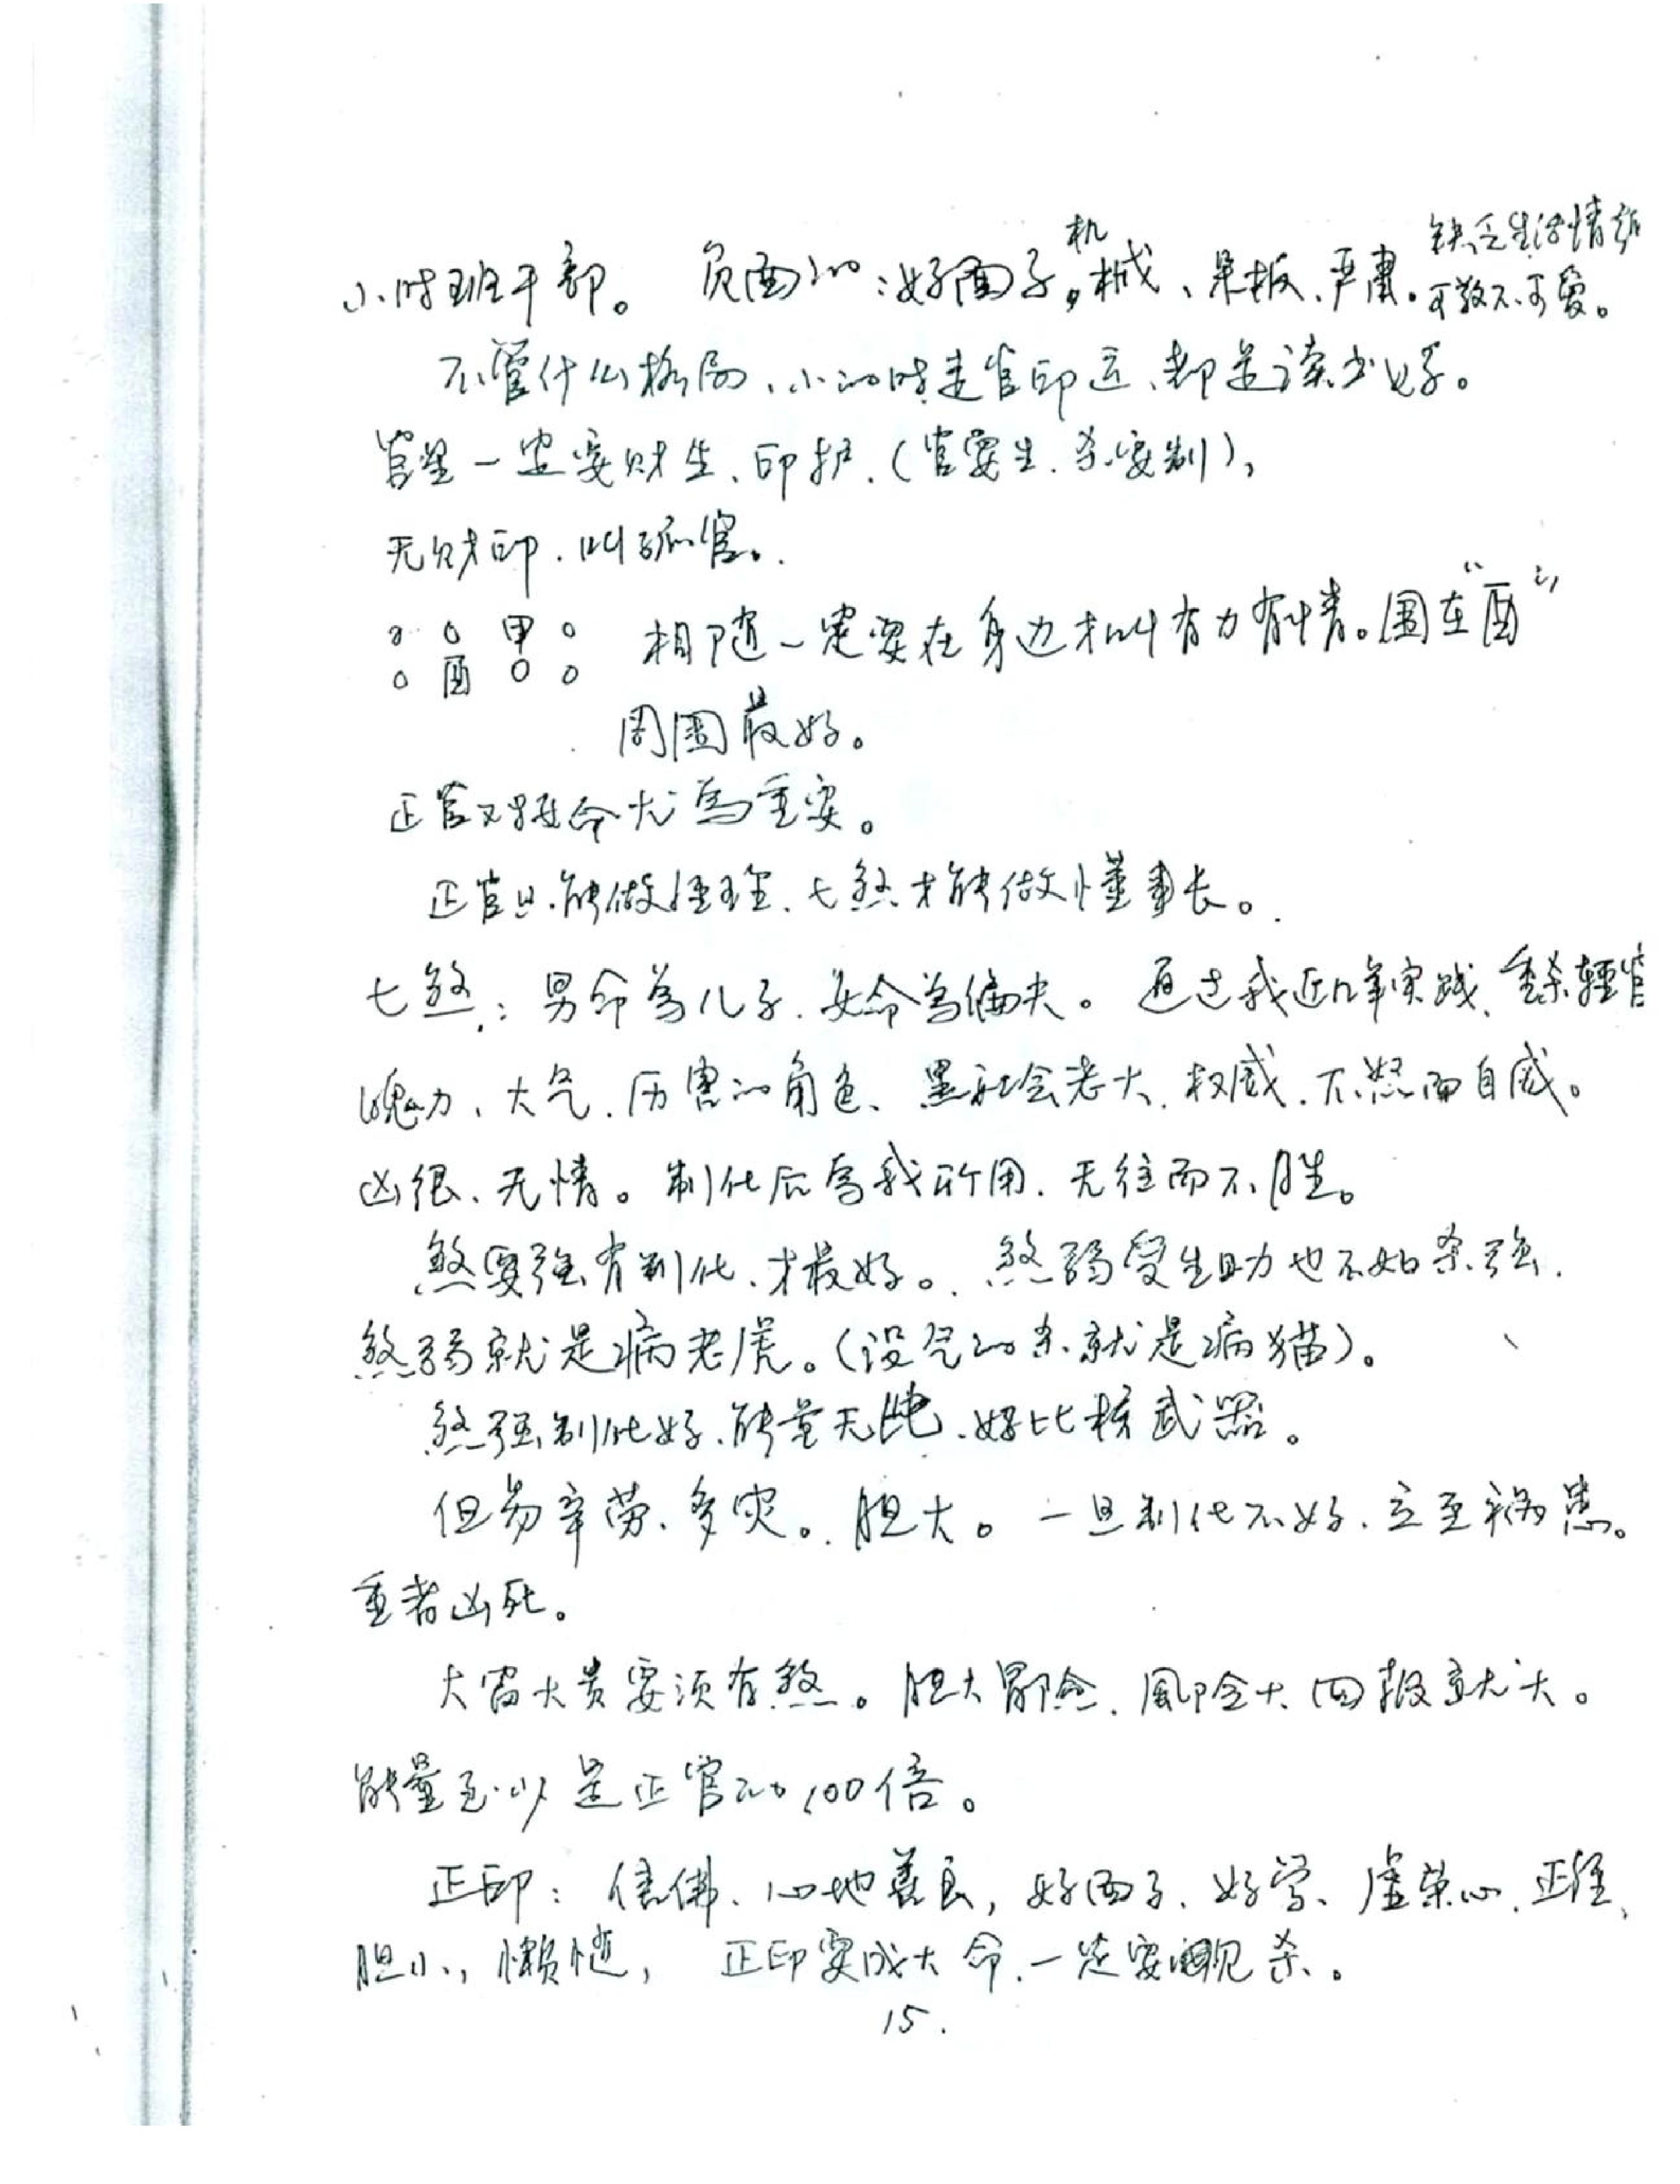 小时班干部。 负面的:好面子,机械、呆板、严肃。缺乏生活情趣
可敬不可爱。
不管什么格局、小的时走官印运、都是读书好。
官星一定要财生、印护.(官要生.杀要制),
无财印.叫孤官。
o o 甲 o 相随一定要在身边才叫有力有情。围在“酉”
o 酉 o o
周围最好。
正官对女命尤為重要。
正官只能做经理、七煞才能做懂事长。
七煞:男命為儿子.女命為偏夫。 通过我近几年实践、重杀輕官
魄力、大气.历害的角色、黑社会老大.权威.不怒而自威。
凶很、无情。制化后為我所用.无往而不胜。
煞要强有制化、才最好。煞弱受生助也不如杀强.
煞弱就是病老虎。(没气的杀就是病猫)。
煞强制化好、能量无比、好比核武器。
但易辛劳、多灾。胆大。一旦制化不好、立至祸患。
重者凶死。
大富大贵要须有煞。胆大冒险、風险大回报就大。
能量至少是正官的100倍。
正印:信佛、心地善良,好面子、好学、虚荣心、正经、
胆小,懒惰, 正印要成大命.一定要见杀。
15.